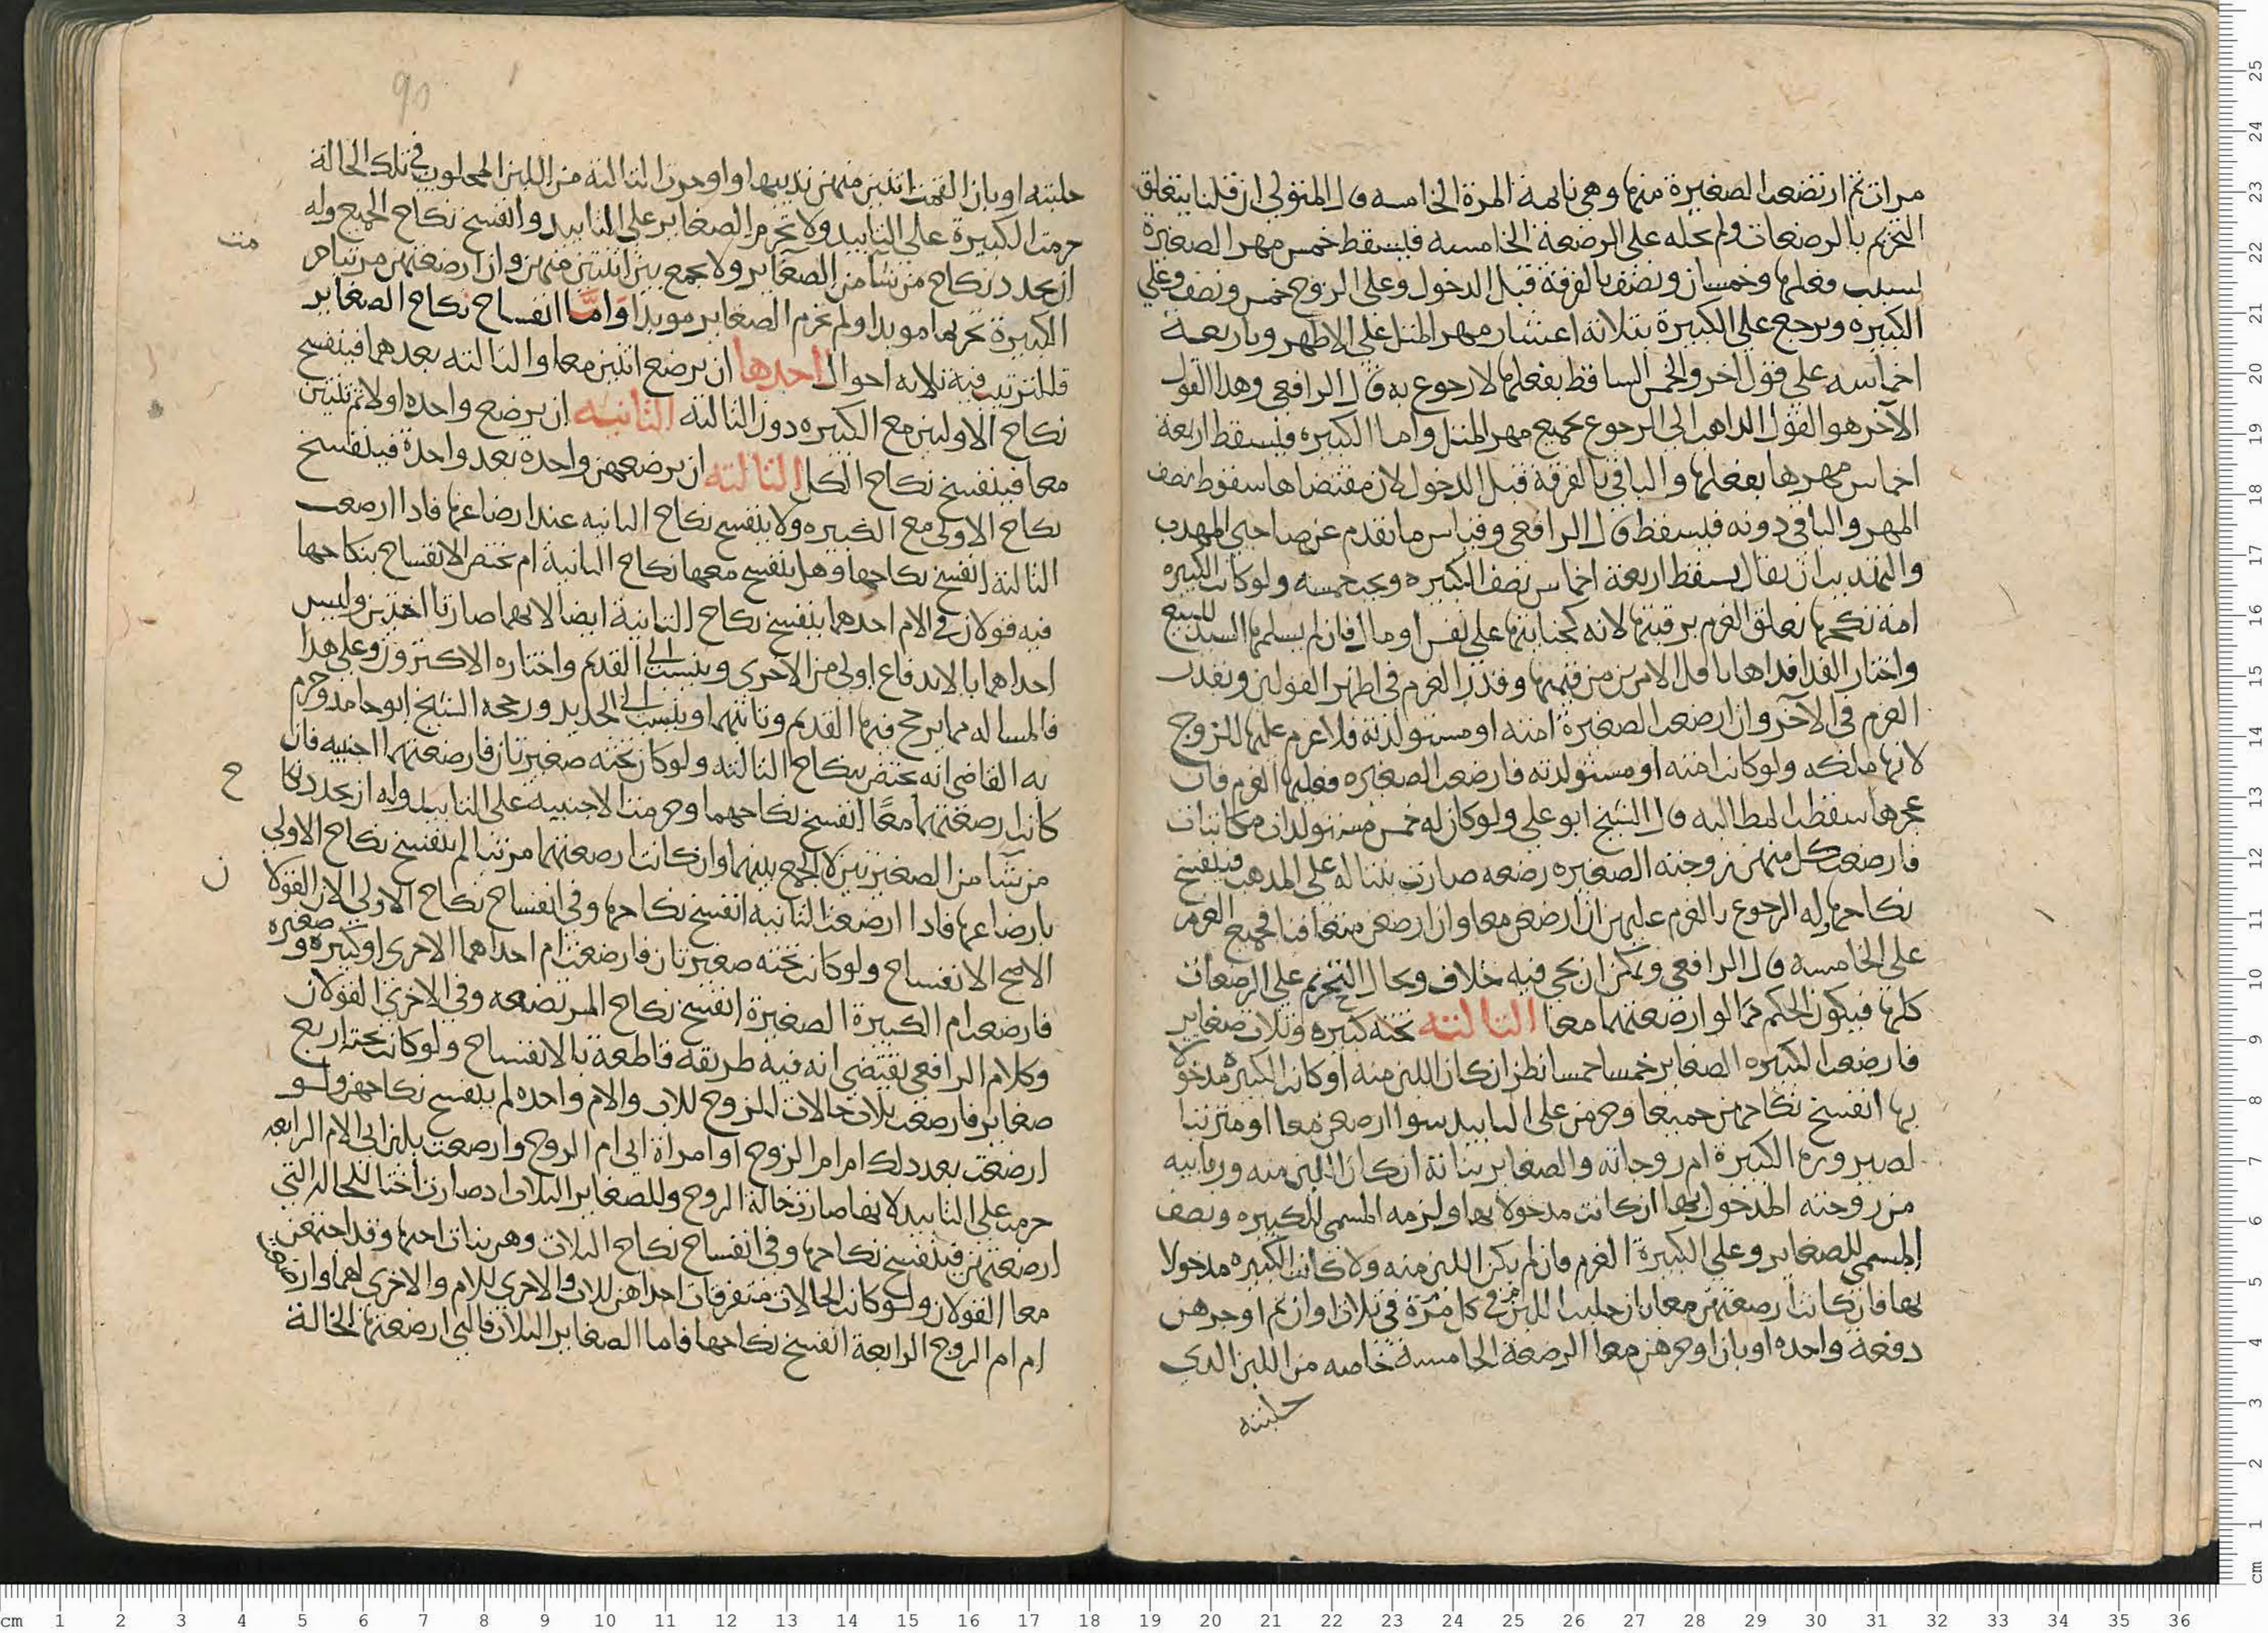 مرات ثم ارتضعت الصغيرة منها وهي نائمة المرة الخامسه قال المتولي ان قلنا يتعلق
التحريم بالرضعات ولم نحله على الرضعة الخامسه فيسقط خمس مهر الصغيرة
بسبب فعلها وخمسان ونصف بالفرقة قبل الدخول وعلى الزوج خمس ونصف وعلى
الكبيره ويرجع على الكبيرة بثلاثة اعشار مهر المثل على الاظهر وباربعة
اخماسه على قول اخر والخمس الساقط بفعلها لا رجوع به قال الرافعي وهذا القول
الآخر هو القول الذاهب الى الرجوع بجميع مهر المثل واما الكبيره فيسقط اربعة
اخماس مهرها بفعلها والباقي بالفرقة قبل الدخول لان مقتضاها سقوط نصف
المهر والباقي دونه فيسقط قال الرافعي وقياس ما تقدم عن صاحبي المهذب
والتهذيب ان يقال يسقط اربعة اخماس نصف الكبيره ويجب خمسه ولو كانت الكبيره
امة نكحها تعلق الغرم برقبتها لانه كجنايتها على نفس او مال فان لم يسلمها السيد للبيع
واختار الفدا فداها باقل الامرين من قيمتها وقدر الغرم في اظهر القولين وبقدر
الغرم في الآخر وان ارضعت الصغيرة امته او مستولدته فلا غرم عليها للزوج
لانها ملكه ولو كانت امته او مستولدته فارضعت الصغيره فعليها الغرم فان
عجزها سقطت المطالبه قال الشيخ ابو علي ولو كان له خمس مستولدات مكاتبات
فارضعت كل منهن زوجته الصغيره رضعه صارت بنتا له على المذهب فينفسخ
نكاحها وله الرجوع بالغرم عليهن ان ارضعن معا وان ارضعن متعاقبا فجميع الغرم
على الخامسه قال الرافعي ويمكن ان يجي فيه خلاف ويحال التحريم على الرضعات
كلها فيكون الحكم كما لو ارضعتهما معا الثالثه تحته كبيره وثلاث صغاير
فارضعت الكبيره الصغاير خمسا خمسا نظر ان كان اللبن منه او كانت الكبيره مدخولا
بها انفسخ نكاحهن جميعا وحرمن على التابيد سوا ارضعن معا او مرتبا
لصيرورة الكبيرة ام زوجاته والصغاير بناته ان كان اللبن منه وربايبه
من زوجته المدخول بها ان كانت مدخولا بها ولزمه المسمى للكبيره ونصف
المسمى للصغاير وعلى الكبيرة الغرم وان لم يكن اللبن منه ولا كانت الكبيره مدخولا
بها فان كانت ارضعتهن معا بان حلبت اللبن في كل مرة في ثلاث اوان ثم اوجرهن
دفعة واحده او بان اوجرهن معا الرضعة الخامسة خاصه من اللبن الذي
حلبته
90
حلبته او بان القمت اثنتين منهن ثدييها واوجرت الثالثة من اللبن المحلوب في تلك الحالة
حرمت الكبيرة على التابيد ولا تحرم الصغاير على التابيد وانفسخ نكاح الجميع وله
ان يجدد نكاح من شا من الصغاير ولا يجمع بين اثنتين منهن وان ارضعتهن مرتبا حر
الكبيرة تحريما موبدا ولم تحرم الصغاير موبدا وامّا انفساح نكاح الصغاير
فللترتيب فيه ثلاثه احوال احدها ان ترضع اثنتين معا والثالثه بعدهما فينفسخ
نكاح الاوليين مع الكبيره دون الثالثه الثانيه ان ترضع واحده اولا ثم ثنتين
معا فينفسخ نكاح الكل الثالثه ان ترضعهن واحدة بعد واحدة فينفسخ
نكاح الاولى مع الكبيره ولا ينفسخ نكاح الثانيه عند ارضاعها فاذا ارضعت
الثالثة انفسخ نكاحها وهل ينفسخ معها نكاح الثانية ام يختص الانفساخ بنكاحها
فيه قولان في الام احدهما ينفسخ نكاح الثانية ايضا لانهما صارتا اختين وليس
احداهما بالاندفاع اولى من الاخرى وينسب الى القديم واختاره الاكثرون وعلى هذا
فالمساله مما يرجح فيها القديم وثانيهما وينسب الى الجديد ورجحه الشيخ ابو حامد وجزم
به القاضي انه يختص بنكاح الثالثه ولو كان تحته صغيرتان فارضعتهما اجنبيه فان
كانت ارضعتهما معًا انفسخ نكاحهما وحرمت الاجنبية على التابيد وله ان يجدد نكا
من شا من الصغيرتين لا الجمع بينهما وان كانت ارضعتهما مرتبا لم ينفسخ نكاح الاولى
بارضاعها فاذا ارضعت الثانيه انفسخ نكاحها وفي انفساخ نكاح الاولى الان القولان
الاصح الانفساخ ولو كانت تحته صغيرتان فارضعت ام احداهما الاخرى او كبيرة و صغيره
فارضعت ام الكبيرة الصغيرة انفسخ نكاح المرتضعه وفي الاخرى القولان
وكلام الرافعي يقتضي انه فيه طريقه قاطعة بالانفساخ ولو كانت تحته اربع
صغاير فارضعت ثلاث خالات للزوج للاب والام واحده لم ينفسخ نكاحهن ولو
ارضعت بعد ذلك ام ام الزوج او امراة ابي ام الزوج وارضعت بلبن ابي الام الرابعه
حرمت على التابيد لانها صارت خالة الزوج وللصغاير الثلاث اذ صارت اختا للخالات التي
ارضعتهن فينفسخ نكاحها وفي انفساخ نكاح الثلاث وهن بنات اختها وقد اجتمعن
معا القولان ولو كانت الخالات متفرقات احداهن للاب والاخرى للام والاخرى لهما وارضعت
ام ام الزوج الرابعة انفسخ نكاحها فاما الصغاير الثلاث فالتي ارضعتها الخالة
ح
ن